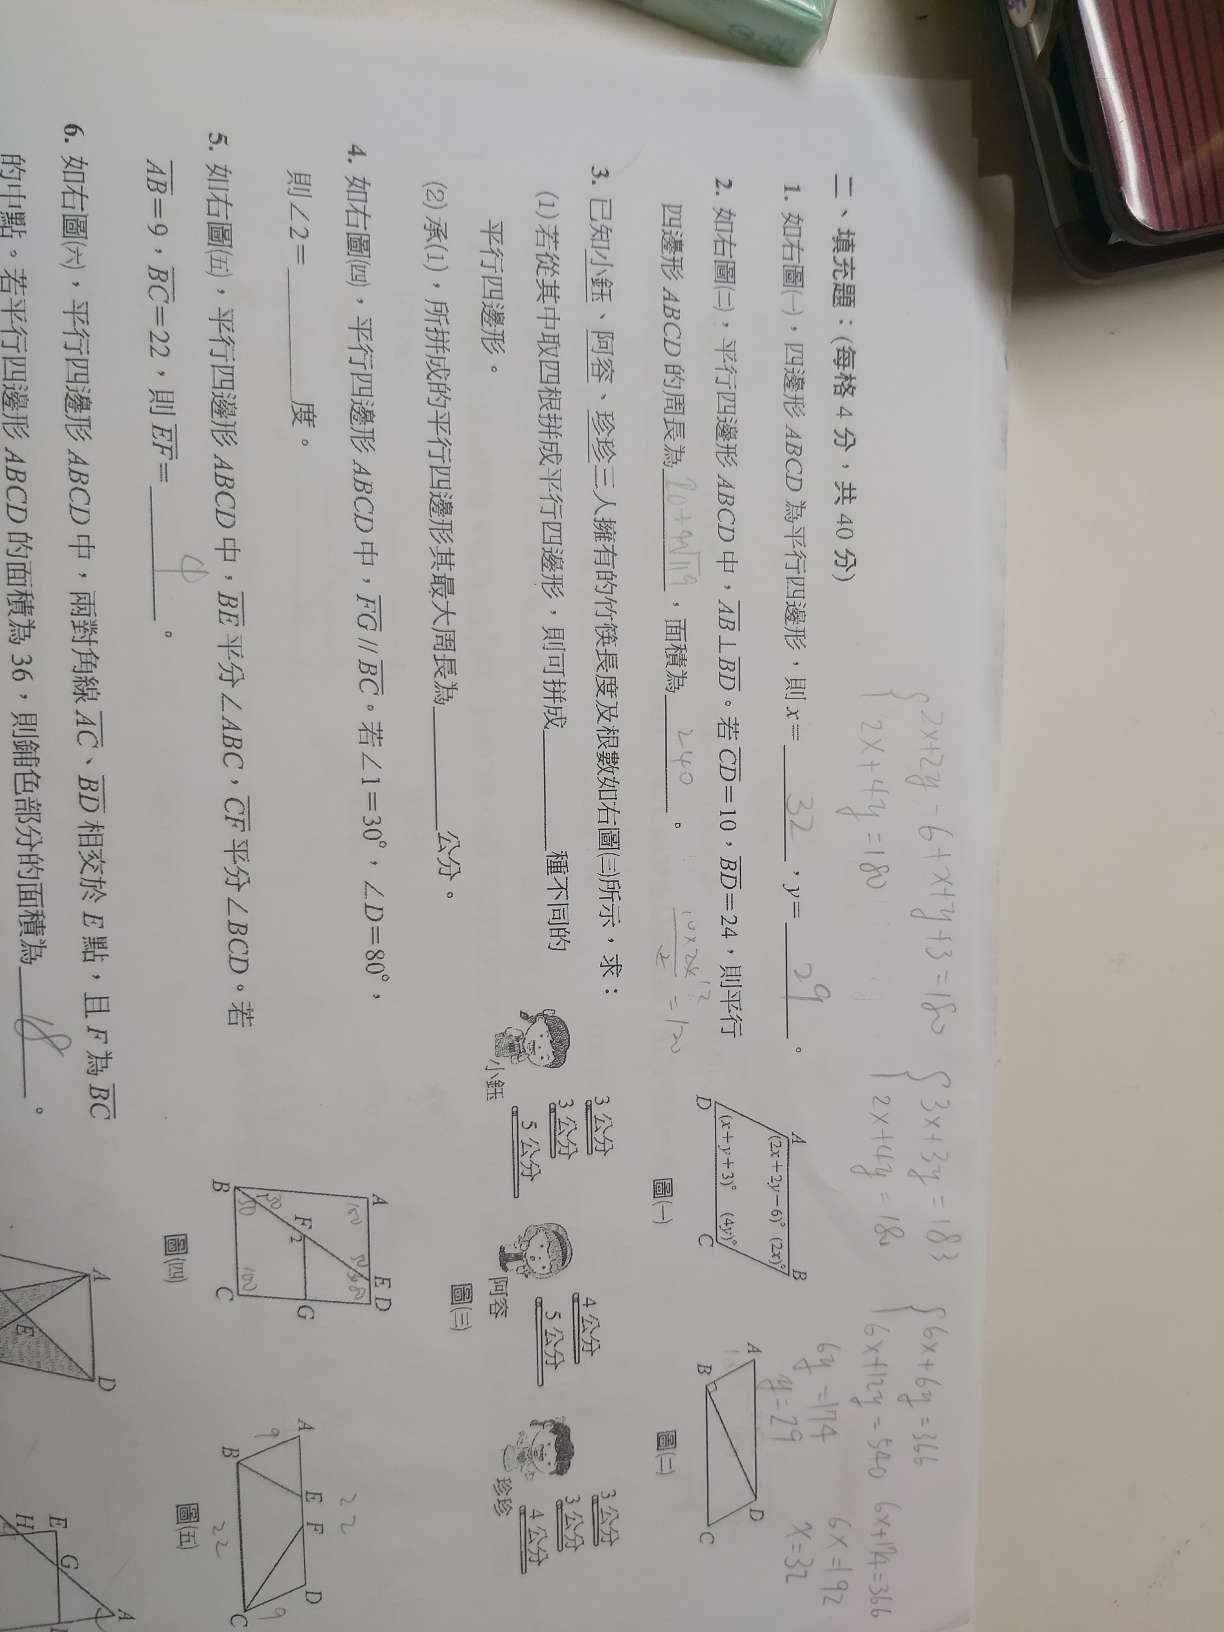 二、填充題：(每格 4 分，共 40 分)
{2x+2y-6+x+y+3=180
2x+4y=180
{3x+3y=183
2x+4y=180
{6x+6y=366
6x+12y=540
6y=174
y=29
6x+174=366
6x=192
x=32
1. 如右圖㈠，四邊形 ABCD 為平行四邊形，則 x= 32 ，y= 29 。
2. 如右圖㈡，平行四邊形 ABCD 中，AB⊥BD。若 CD=10，BD=24，則平行
四邊形 ABCD 的周長為 ，面積為 240 。
=120
3. 已知小鈺、阿容、珍珍三人擁有的竹筷長度及根數如右圖㈢所示，求：
(1) 若從其中取四根拼成平行四邊形，則可拼成______種不同的
平行四邊形。
(2) 承(1)，所拼成的平行四邊形其最大周長為______公分。
4. 如右圖㈣，平行四邊形 ABCD 中，FG // BC。若∠1=30°，∠D=80°，
則∠2=______度。
5. 如右圖㈤，平行四邊形 ABCD 中，BE 平分∠ABC，CF 平分∠BCD。若
AB=9，BC=22，則 EF= 4 。
6. 如右圖㈥，平行四邊形 ABCD 中，兩對角線 AC、BD 相交於 E 點，且 F 為 BC
的中點。若平行四邊形 ABCD 的面積為 36，則鋪色部分的面積為 18 。
A B
(2x+2y-6)° (2x)°
(x+y+3)° (4y)°
D C
圖㈠
A D
B C
圖㈡
3 公分
3 公分
5 公分
小鈺
4 公分
5 公分
阿容
3 公分
3 公分
4 公分
珍珍
圖㈢
A E D
100 80
F 2 G
30
50 100
B C
圖㈣
22
A E F D
9 9
B C
22
圖㈤
A D
E
A
E G
H